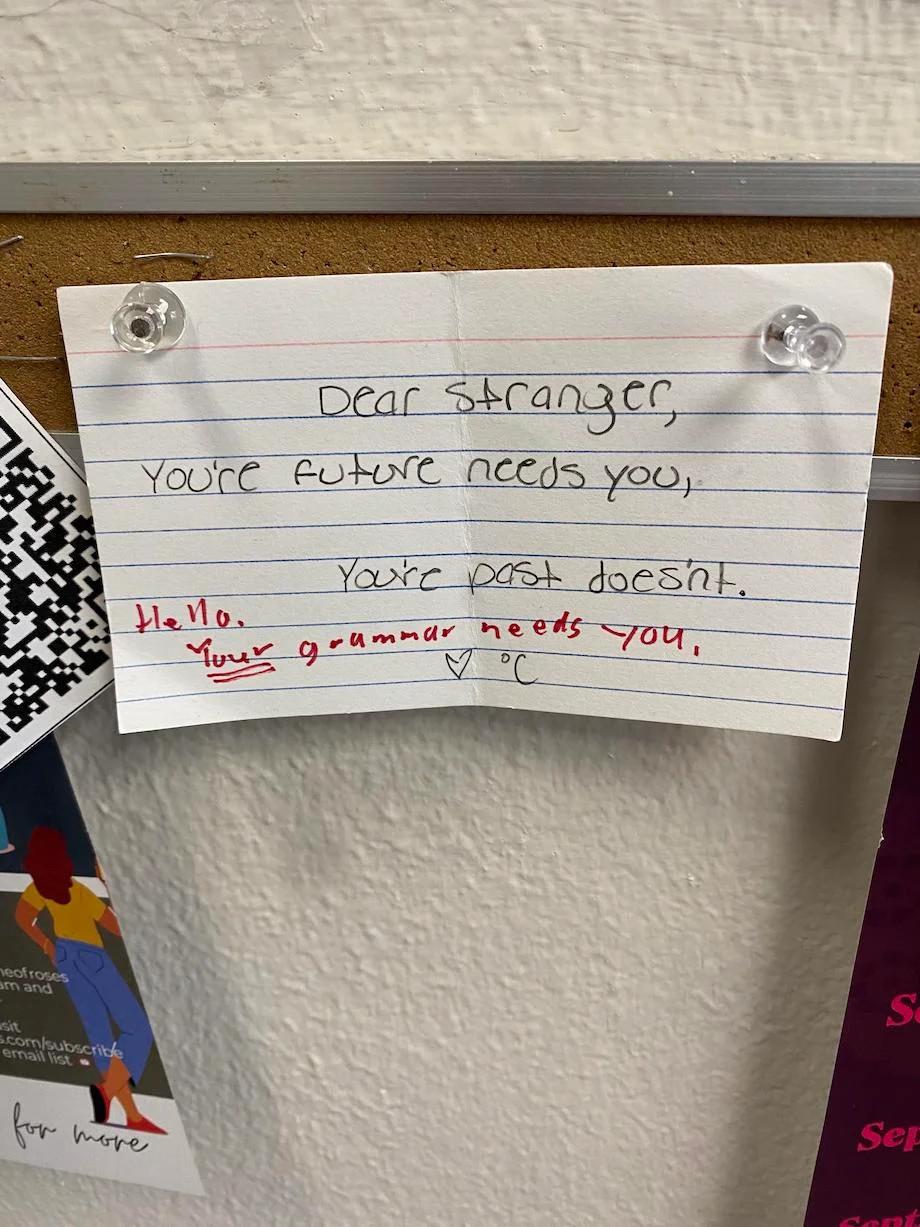 Dear Stranger,
You're future needs you,
You're past does'nt.
Hello.
Your grammar needs you.
♡ °C
neofroses
am and
sit
s.com/subscribe
email list
for more
Se
Sep
Sept